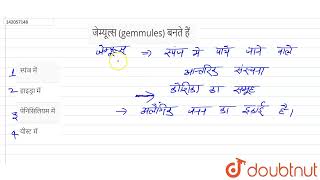 142057148
जेम्यूल्स (gemmules) बनते हैं
जेम्यूल्स ⇒ स्पंज में पाये जाने वाले
1 स्पंज में
आन्तरिक संरचना
2 हाइड्रा में
का समूह
3 पेनिसिलियम में
→ अलैंगिक जनन का इकाई है।
4 यीस्ट में
doubtnut